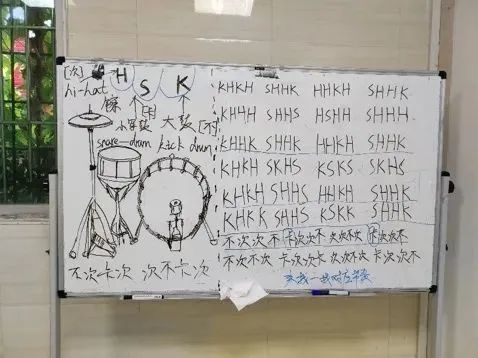 [次] H S K
hi-hat
镲 [卡]
小军鼓 大鼓 [不]
snare-drum kick drum
不次卡次 次不卡次
KHKH SHHK HHKH SHHK
KHHH SHHS HSHH SHHH
KHHK SHHK HHKH SHHK
KHKH SKHS KSKS SKHS
KHKH SHHS HHKH SHHK
KHKK SHHS KSKK SHHK
不次次不 卡次次不 次次不次 卡次次不
不次不次 卡次次卡 次次不次 卡次次不